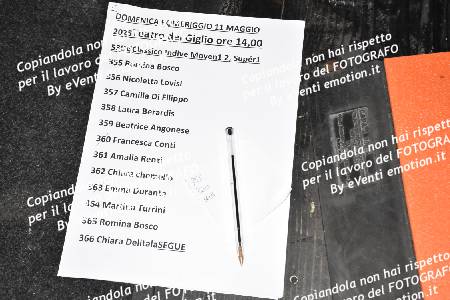 DOMENICA POMERIGGIO 11 MAGGIO
Teatro del Giglio ore 14,00
355 Romina Bosco
356 Nicoletta Lovisi
357 Camilla Di Filippo
358 Laura Berardis
359 Beatrice Angonese
360 Francesca Conti
361 Amalia Renti
362 Chiara
363 Emma Durante
364 Martina Turrini
365 Romina Bosco
366 Chiara DelitalaSEGUE
Copiandola non hai rispetto
per il lavoro del FOTOGRAFO
By eVenti emotion.it
Copiandola non hai rispetto
per il lavoro del FOTOGRAFO
By eVenti emotion.it
Copiandola non hai rispetto
per il lavoro del FOTOGRAFO
By eVenti emotion.it
Copiandola
per il lavoro
By eVenti
Copiandola non hai rispetto
Copiandola non hai rispetto
per il lavoro del FOTOGRAFO